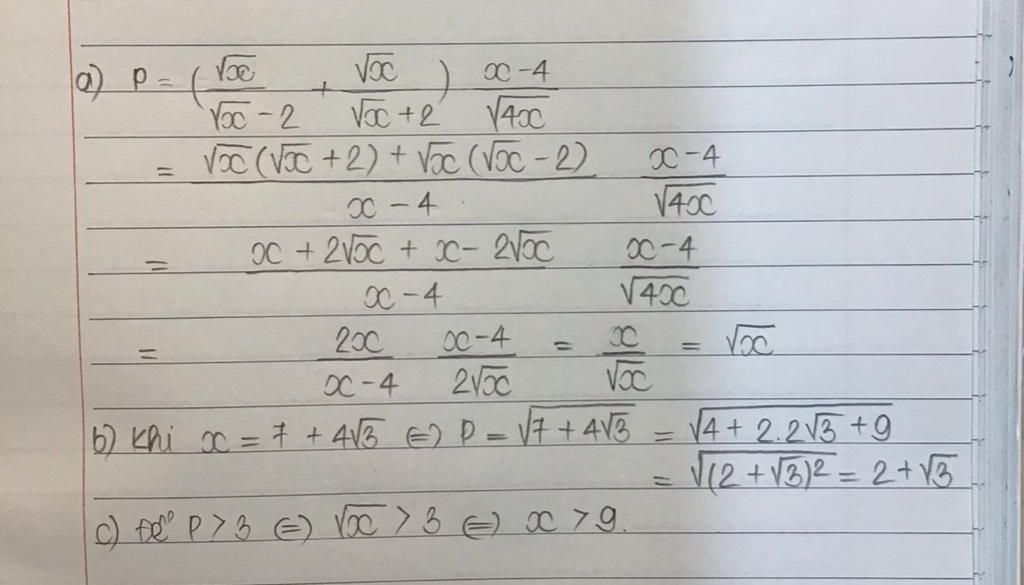 a) P = (√x/(√x - 2) + √x/(√x + 2)) (x - 4)/√4x
= (√x(√x + 2) + √x(√x - 2))/(x - 4) (x - 4)/√4x
= (x + 2√x + x - 2√x)/(x - 4) (x - 4)/√4x
= 2x/(x - 4) (x - 4)/2√x = x/√x = √x
b) Khi x = 7 + 4√3 ⇔ P = √(7 + 4√3) = √(4 + 2.2√3 + 9)
= √((2 + √3)²) = 2 + √3
c) Để P > 3 ⇔ √x > 3 ⇔ x > 9.